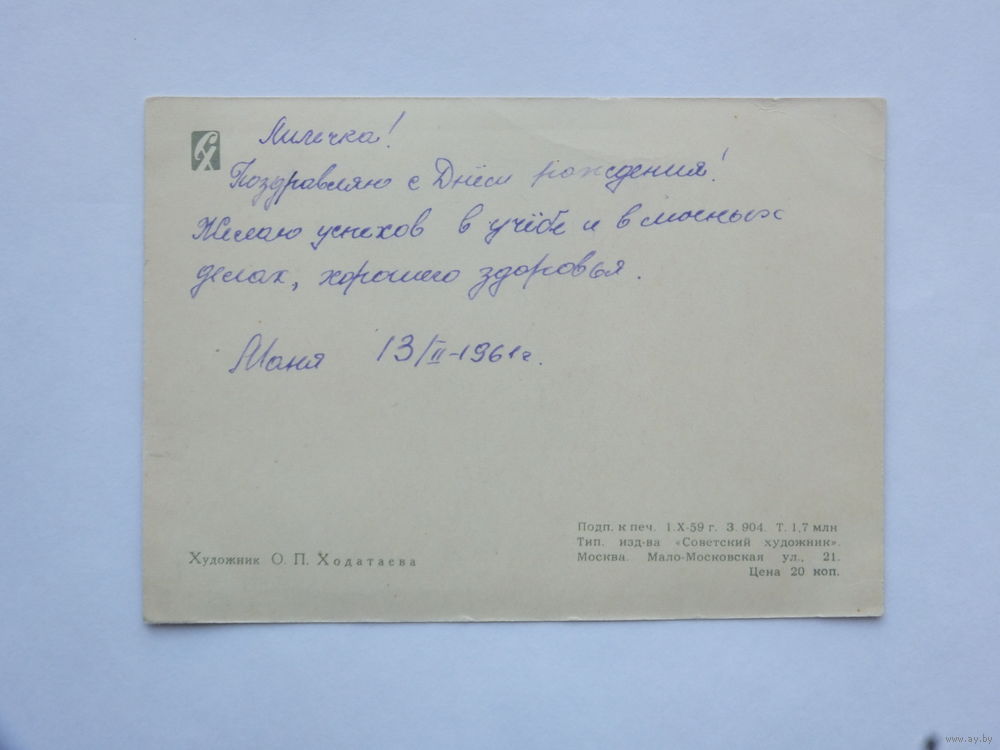 Лилечка!
Поздравляю с Днём рождения!
Желаю успехов в учёбе и в личных
делах, хорошего здоровья.
Маня 13/II-1961г.
Художник О. П. Ходатаева
Подп. к печ. 1.X-59 г. З. 904. Т. 1,7 млн
Тип. изд-ва «Советский художник».
Москва. Мало-Московская ул., 21.
Цена 20 коп.
www.ay.by